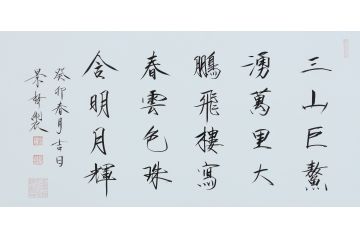 三山巨鰲
湧萬里大
鵬飛樓寫
春雲色珠
含明月輝
癸卯春月吉日